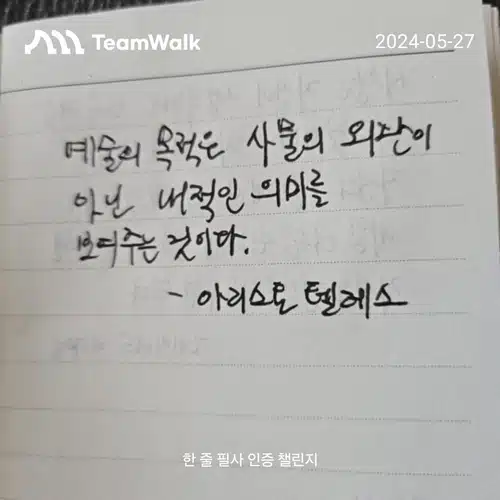 TeamWalk
2024-05-27
예술의 목적은 사물의 외관이
아닌 내적인 의미를
보여주는 것이다.
- 아리스토텔레스
한 줄 필사 인증 챌린지